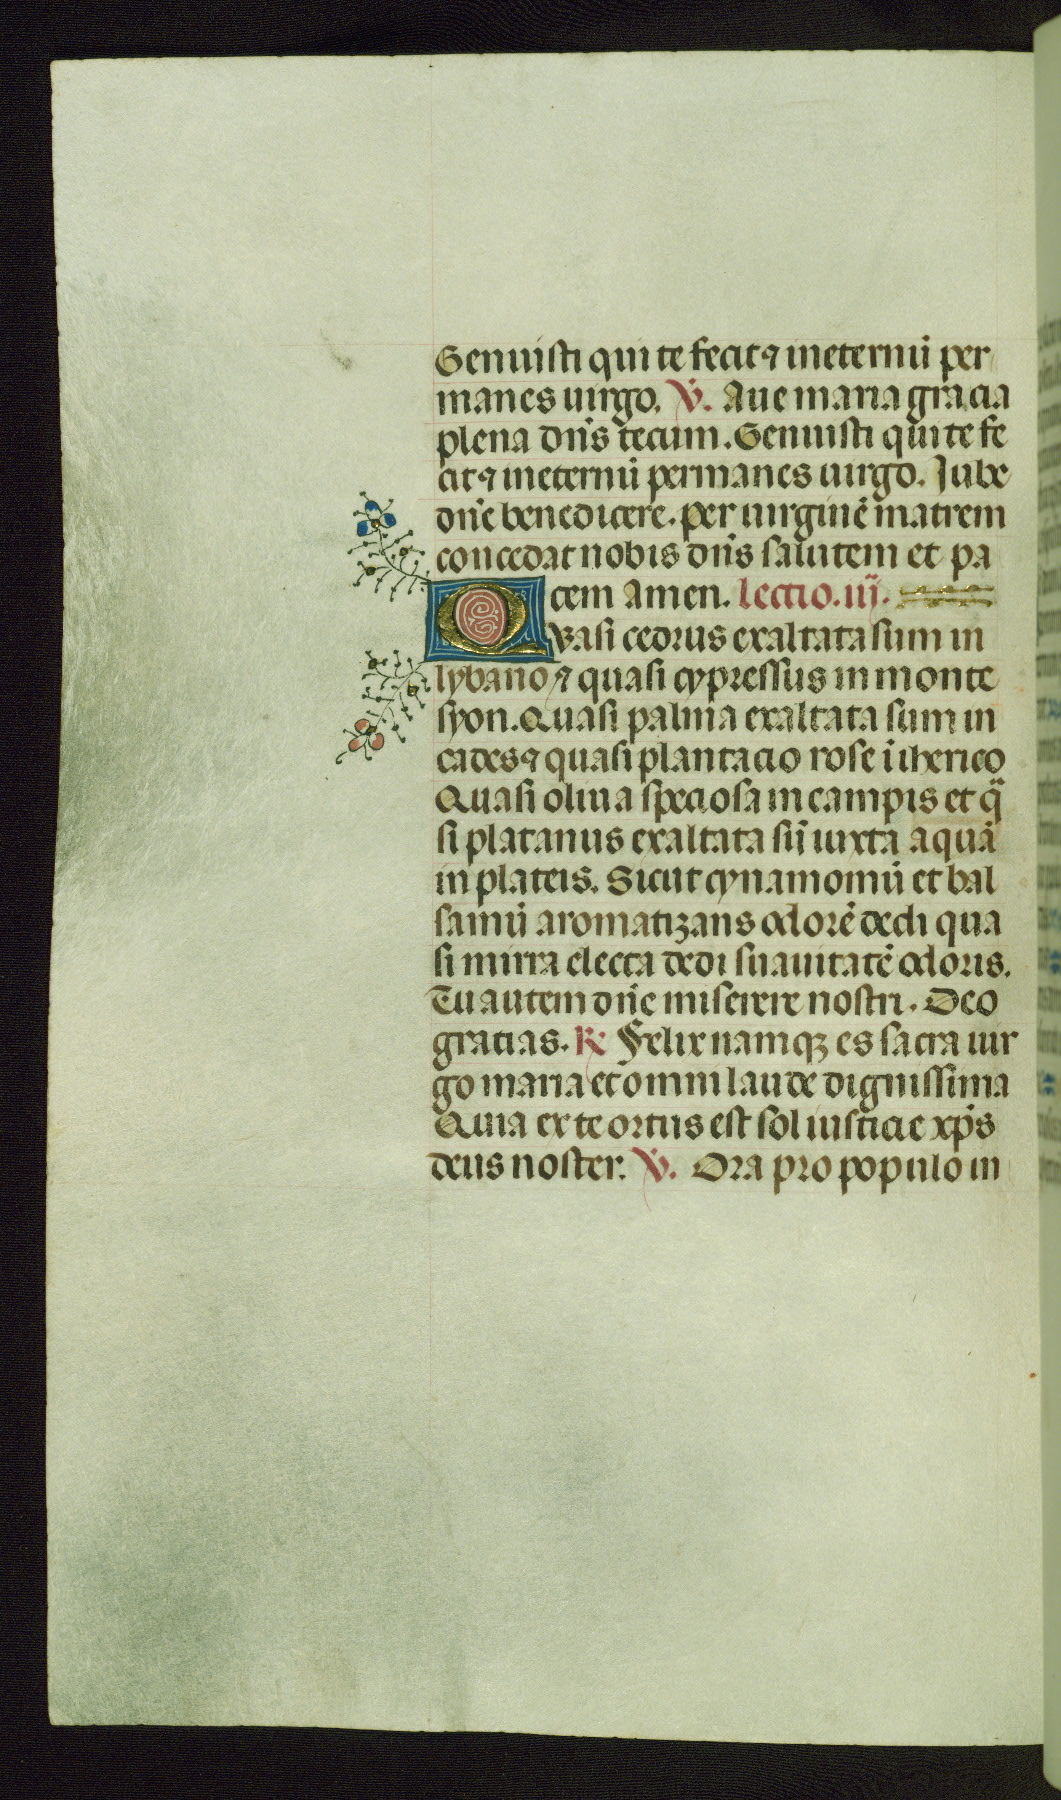 Genuisti qui te fecit ⁊ ineternū per
manes uirgo. V̇. Aue maria gracia
plena dn̄s tecum. Genuisti qui te fe
cit ⁊ ineternū permanes uirgo. Jube
dn̄e benedicere. per uirginē matrem
concedat nobis dn̄s salutem et pa
cem amen. lectio. iij.
Quasi cedrus exaltata sum in
lybano ⁊ quasi cypressus in monte
syon. Quasi palma exaltata sum in
cades ⁊ quasi plantacio rose i iherico
Quasi oliua speciosa in campis et q̄
si platanus exaltata sū iuxta aquā
in plateis. Sicut cynamomū et bal
samū aromatizans odorē dedi qua
si mirra electa dedi suauitatē odoris.
Tu autem dn̄e miserere nostri. Deo
gracias. R̷ Felix namqꝫ es sacra uir
go maria et omni laude dignissima
Quia ex te ortus est sol iusticie xp̄s
deus noster. V̇. Ora pro populo in